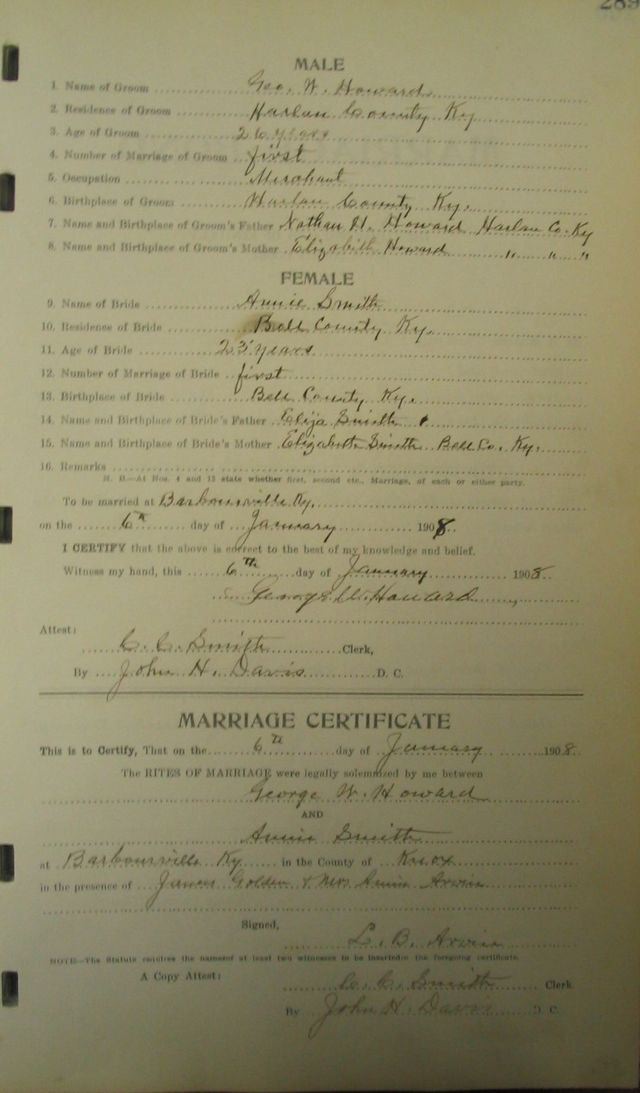 289
MALE
1. Name of Groom Geo. W. Howard
2. Residence of Groom Harlan County Ky
3. Age of Groom 26 years
4. Number of Marriage of Groom first
5. Occupation Merchant
6. Birthplace of Groom Harlan County Ky.
7. Name and Birthplace of Groom's Father Nathan H. Howard Harlan Co. Ky
8. Name and Birthplace of Groom's Mother Elizabeth Howard " " "
FEMALE
9. Name of Bride Annie Smith
10. Residence of Bride Bell County Ky.
11. Age of Bride 23 years
12. Number of Marriage of Bride first
13. Birthplace of Bride Bell County Ky.
14. Name and Birthplace of Bride's Father Elija Smith
15. Name and Birthplace of Bride's Mother Elizabeth Smith Bell Co. Ky.
16. Remarks
N. B.—At Nos. 4 and 12 state whether first, second etc., Marriage, of each or either party.
To be married at Barbourville Ky.
on the 6th day of January 1908
I CERTIFY that the above is correct to the best of my knowledge and belief.
Witness my hand, this 6th day of January 1908
George W. Howard
Attest:
C. C. Smith Clerk,
By John H. Davis D. C.
MARRIAGE CERTIFICATE
This is to Certify, That on the 6th day of January 1908
The RITES OF MARRIAGE were legally solemnized by me between
George W. Howard
AND
Annie Smith
at Barbourville Ky in the County of Knox
in the presence of James Golden & Mrs Annie Arvin
Signed,
L. B. Arvin
NOTE—The Statute requires the names of at least two witnesses to be inserted in the foregoing certificate.
A Copy Attest:
C. C. Smith Clerk
By John H. Davis D. C.